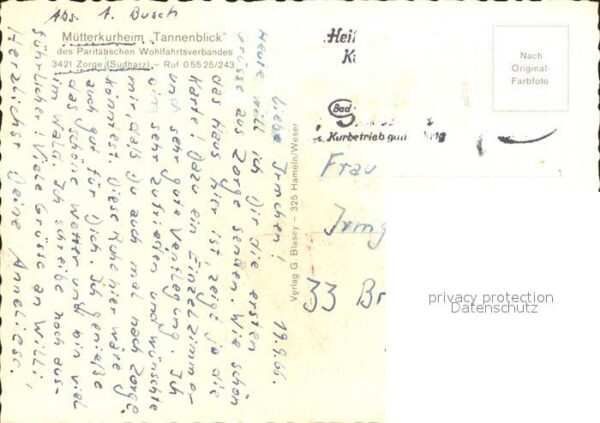 Abs. A. Busch
Mütterkurheim „Tannenblick"
des Paritätischen Wohlfahrtsverbandes
3421 Zorge (Südharz) – Ruf 05525/243
19.9.66.
Liebe Irmchen!
Heute will ich Dir die ersten
Grüsse aus Zorge senden. Wie schön
das Haus hier ist, zeigt ja die
Karte! Dazu ein Einzelzimmer
und sehr gute Verpflegung. Ich
bin sehr zufrieden und wünschte
mir, daß Du auch mal nach Zorge
könntest. Diese Ruhe hier wäre
auch gut für Dich. Ich genieße
das schöne Wetter und bin viel
im Wald. Ich schreibe noch aus-
führlicher! Viele Grüsse an Willi,
Herzlichst Deine Anneliese.
Verlag G. Blasey – 325 Hameln/Weser
Heil
Bad
Kurbetrieb
Nach
Original-
Farbfoto
Frau
Irmg
33 Br
privacy protection
Datenschutz